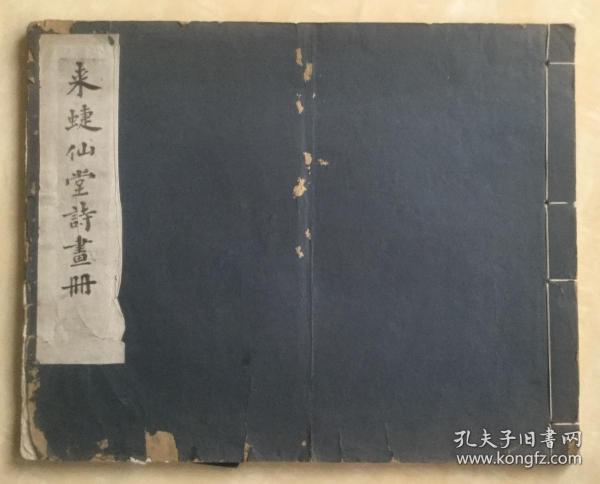 来蜨仙堂詩畫册
孔夫子旧書网
www.kongfz.com